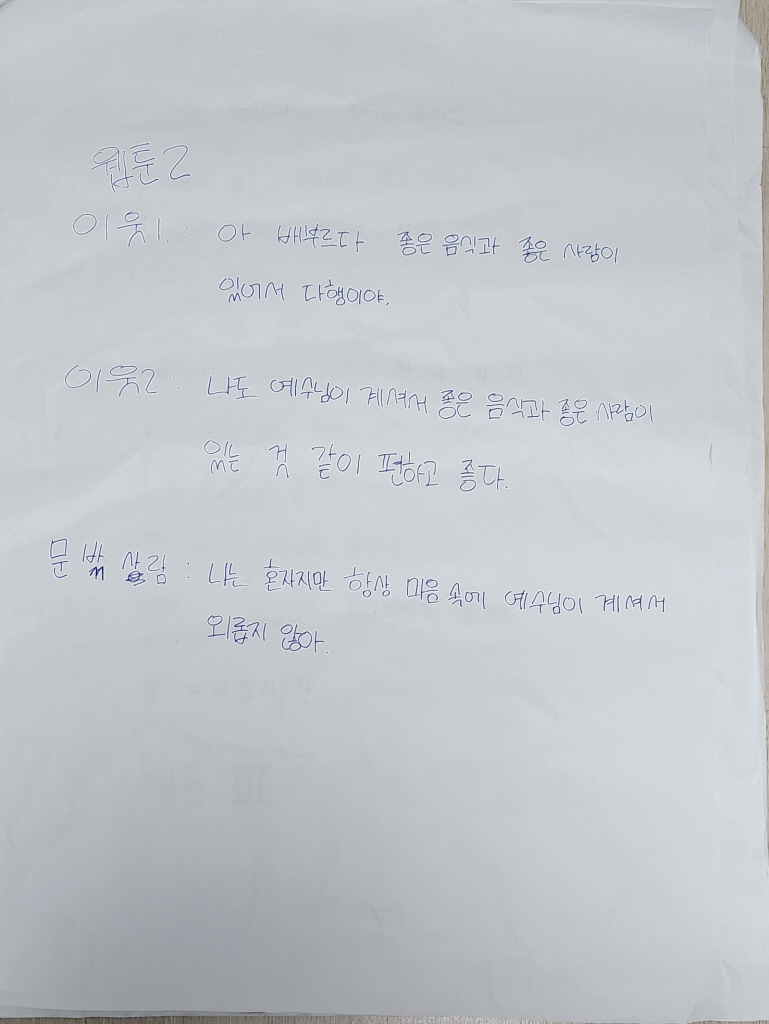 웹툰2
이웃1 : 아 배부르다 좋은 음식과 좋은 사람이
있어서 다행이야.
이웃2 : 나도 예수님이 계셔서 좋은 음식과 좋은 사람이
있는 것 같이 편하고 좋다.
문 밖 사람 : 나는 혼자지만 항상 마음 속에 예수님이 계셔서
외롭지 않아.